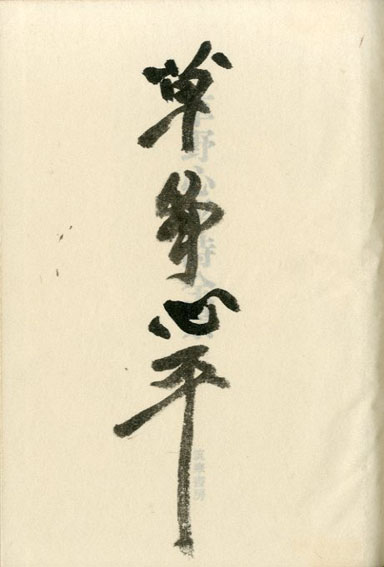 草野心平